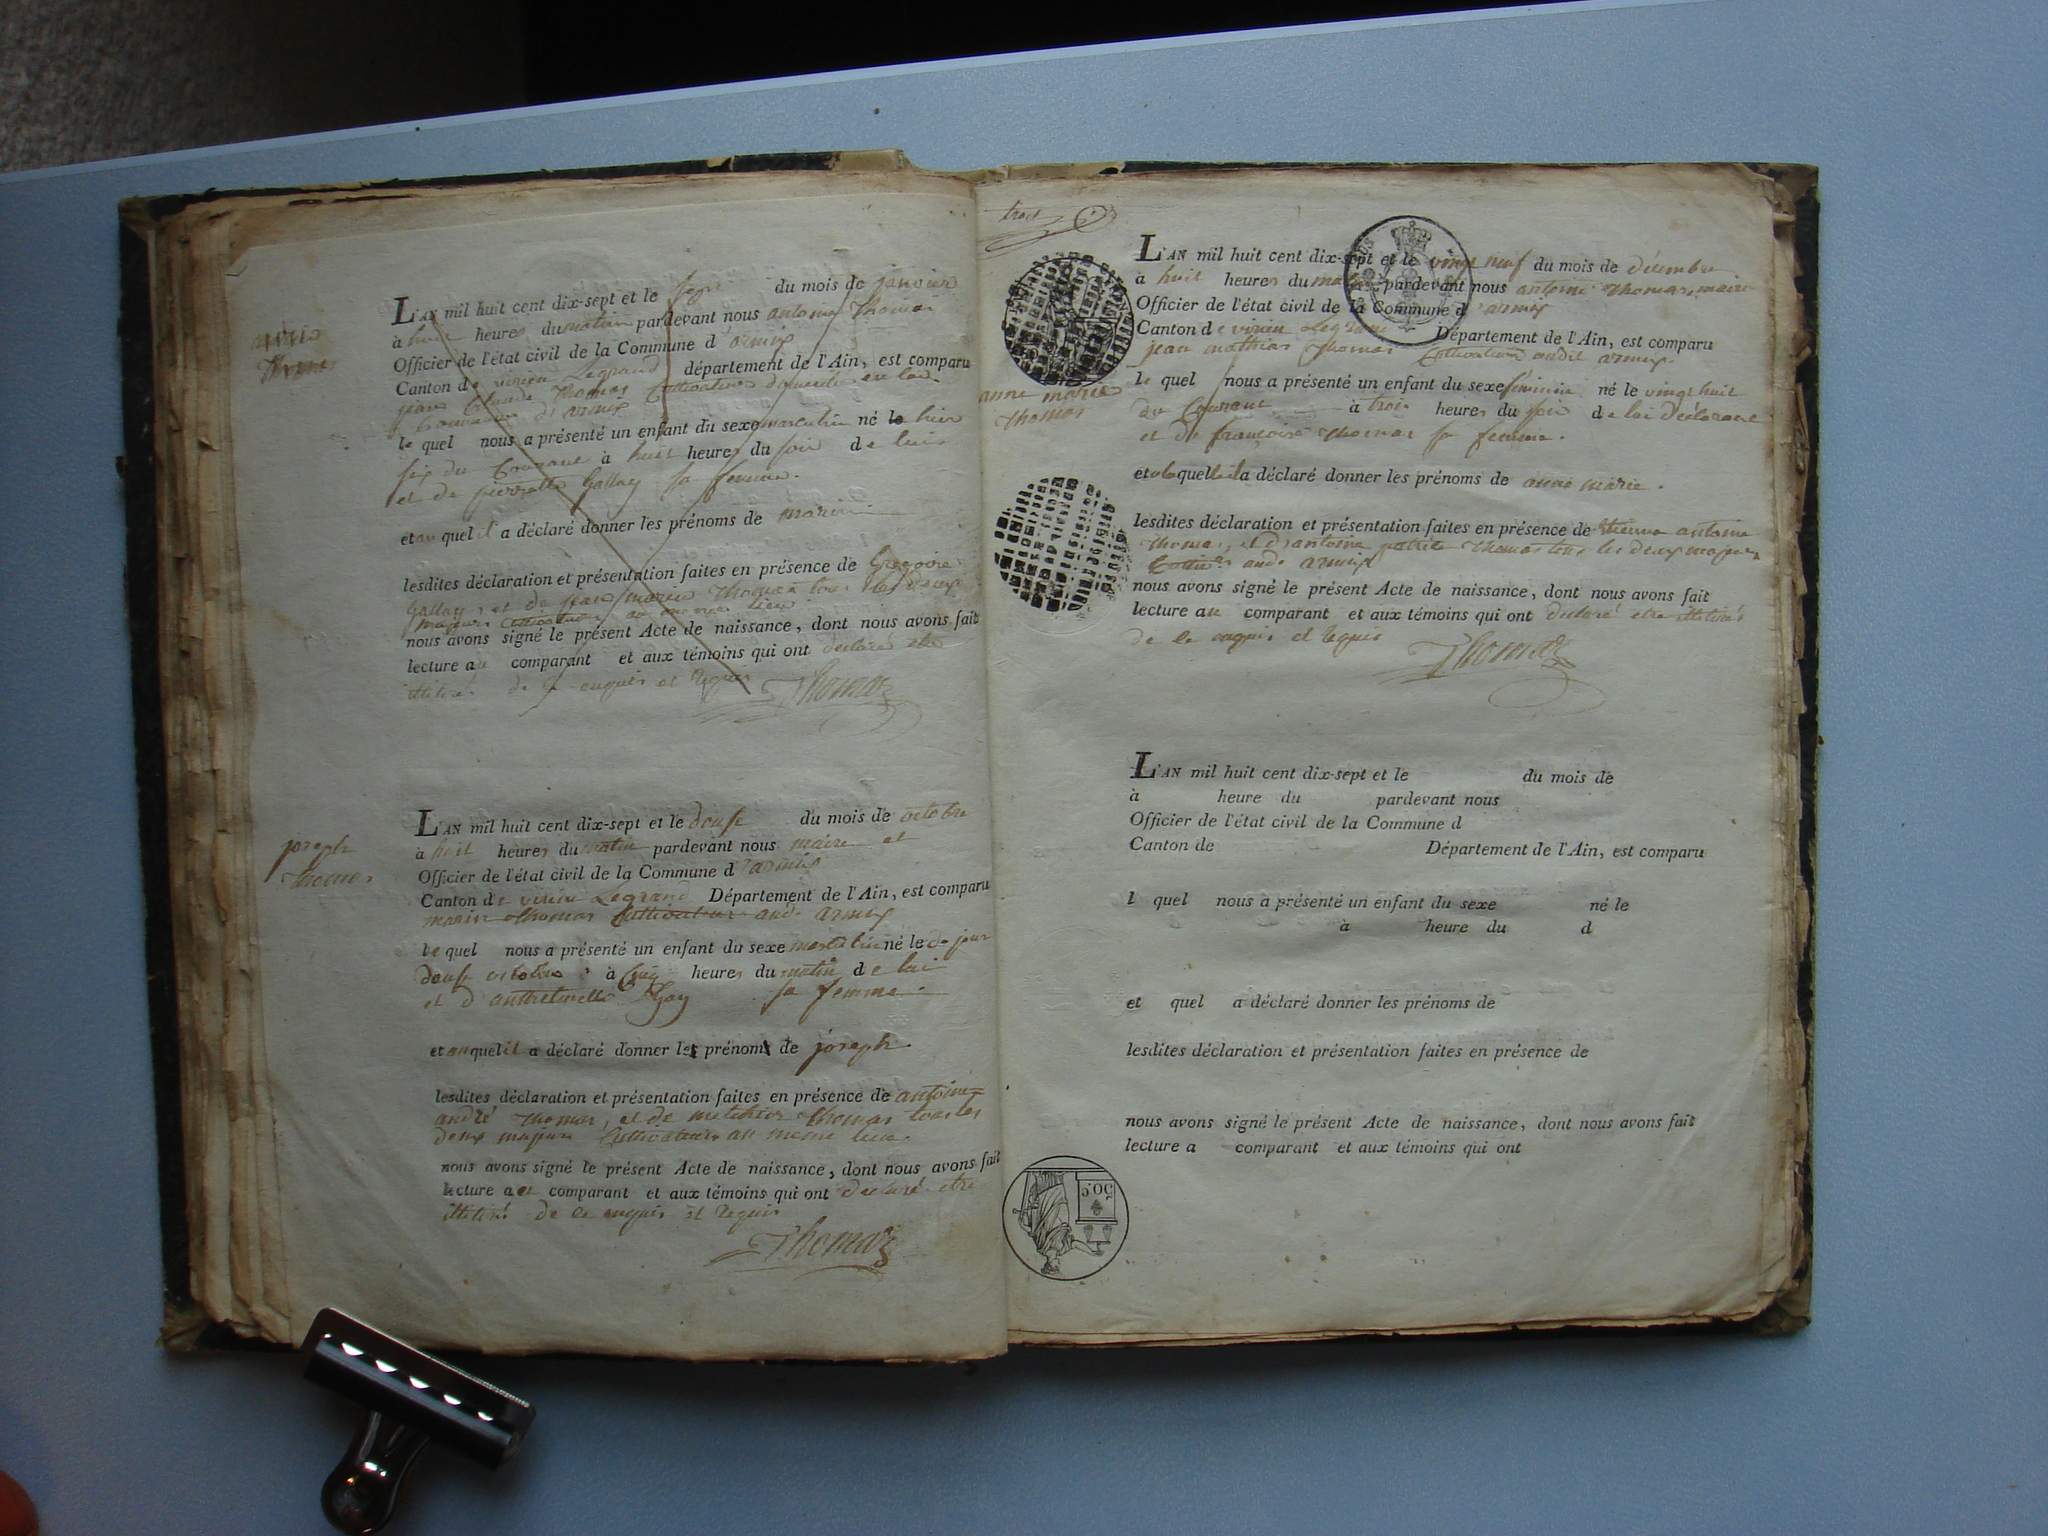 L'AN mil huit cent dix-sept et le sept du mois de janvier
à huit heures du matin pardevant nous antoine Thomas
Officier de l'état civil de la Commune d'armix
Canton de virieu Legrand département de l'Ain, est comparu
jean Claude Thomas Cultivateur en la
Commune d'armix
le quel nous a présenté un enfant du sexe masculin né le hier
six du Courant à huit heures du soir de luis
et de pierrette Gallay sa femme.
et au quel il a déclaré donner les prénoms de marin
lesdites déclaration et présentation faites en présence de Gregoire
Gallay, et de jean marin Thomas tous les deux
majeurs cultivateurs au même lieu
nous avons signé le présent Acte de naissance, dont nous avons fait
lecture au comparant et aux témoins qui ont déclaré etre
illitirés de ce enquis et Requis
Thomas
joseph
Thomas
L'AN mil huit cent dix-sept et le douse du mois de octobre
à huit heures du matin pardevant nous maire et
Officier de l'état civil de la Commune d'armix
Canton de virieu Legrand Département de l'Ain, est comparu
marin Thomas Cultivateur aud. armix
le quel nous a présenté un enfant du sexe masculin né le de jour
douse octobre à Cinq heures du matin de lui
et d'anthelmette Gay sa femme.
et au quel il a déclaré donner les prénoms de joseph.
lesdites déclaration et présentation faites en présence de antoine
andré Thomas, et de melchior Thomas tous les
deux majeurs Cultivateurs au meme lieu.
nous avons signé le présent Acte de naissance, dont nous avons fait
lecture au comparant et aux témoins qui ont declaré etre
illitiré de ce enquis et Requis
Thomas
trois
L'AN mil huit cent dix-sept et le vingt neuf du mois de décembre
à huit heures du matin pardevant nous antoine Thomas maire
Officier de l'état civil de la Commune d'armix
Canton de virieu Legrand Département de l'Ain, est comparu
jean mathias Thomas Cultivateur audit armix.
anne marie
Thomas
le quel nous a présenté un enfant du sexe féminin né le vingt huit
du Courant à trois heures du soir de lui déclarant
et de françoise Thomas sa femme.
et a laquelle il a déclaré donner les prénoms de anne marie.
lesdites déclaration et présentation faites en présence de etienne antoine
Thomas, et d'antoine Thomas tous les deux majeurs
aud. armix
nous avons signé le présent Acte de naissance, dont nous avons fait
lecture au comparant et aux témoins qui ont declaré etre illitirés
de ce enquis et Requis
Thomas
L'AN mil huit cent dix-sept et le du mois de
à heure du pardevant nous
Officier de l'état civil de la Commune d
Canton de Département de l'Ain, est comparu
l quel nous a présenté un enfant du sexe né le
à heure du d
et quel a déclaré donner les prénoms de
lesdites déclaration et présentation faites en présence de
nous avons signé le présent Acte de naissance, dont nous avons fait
lecture a comparant et aux témoins qui ont
50 c.